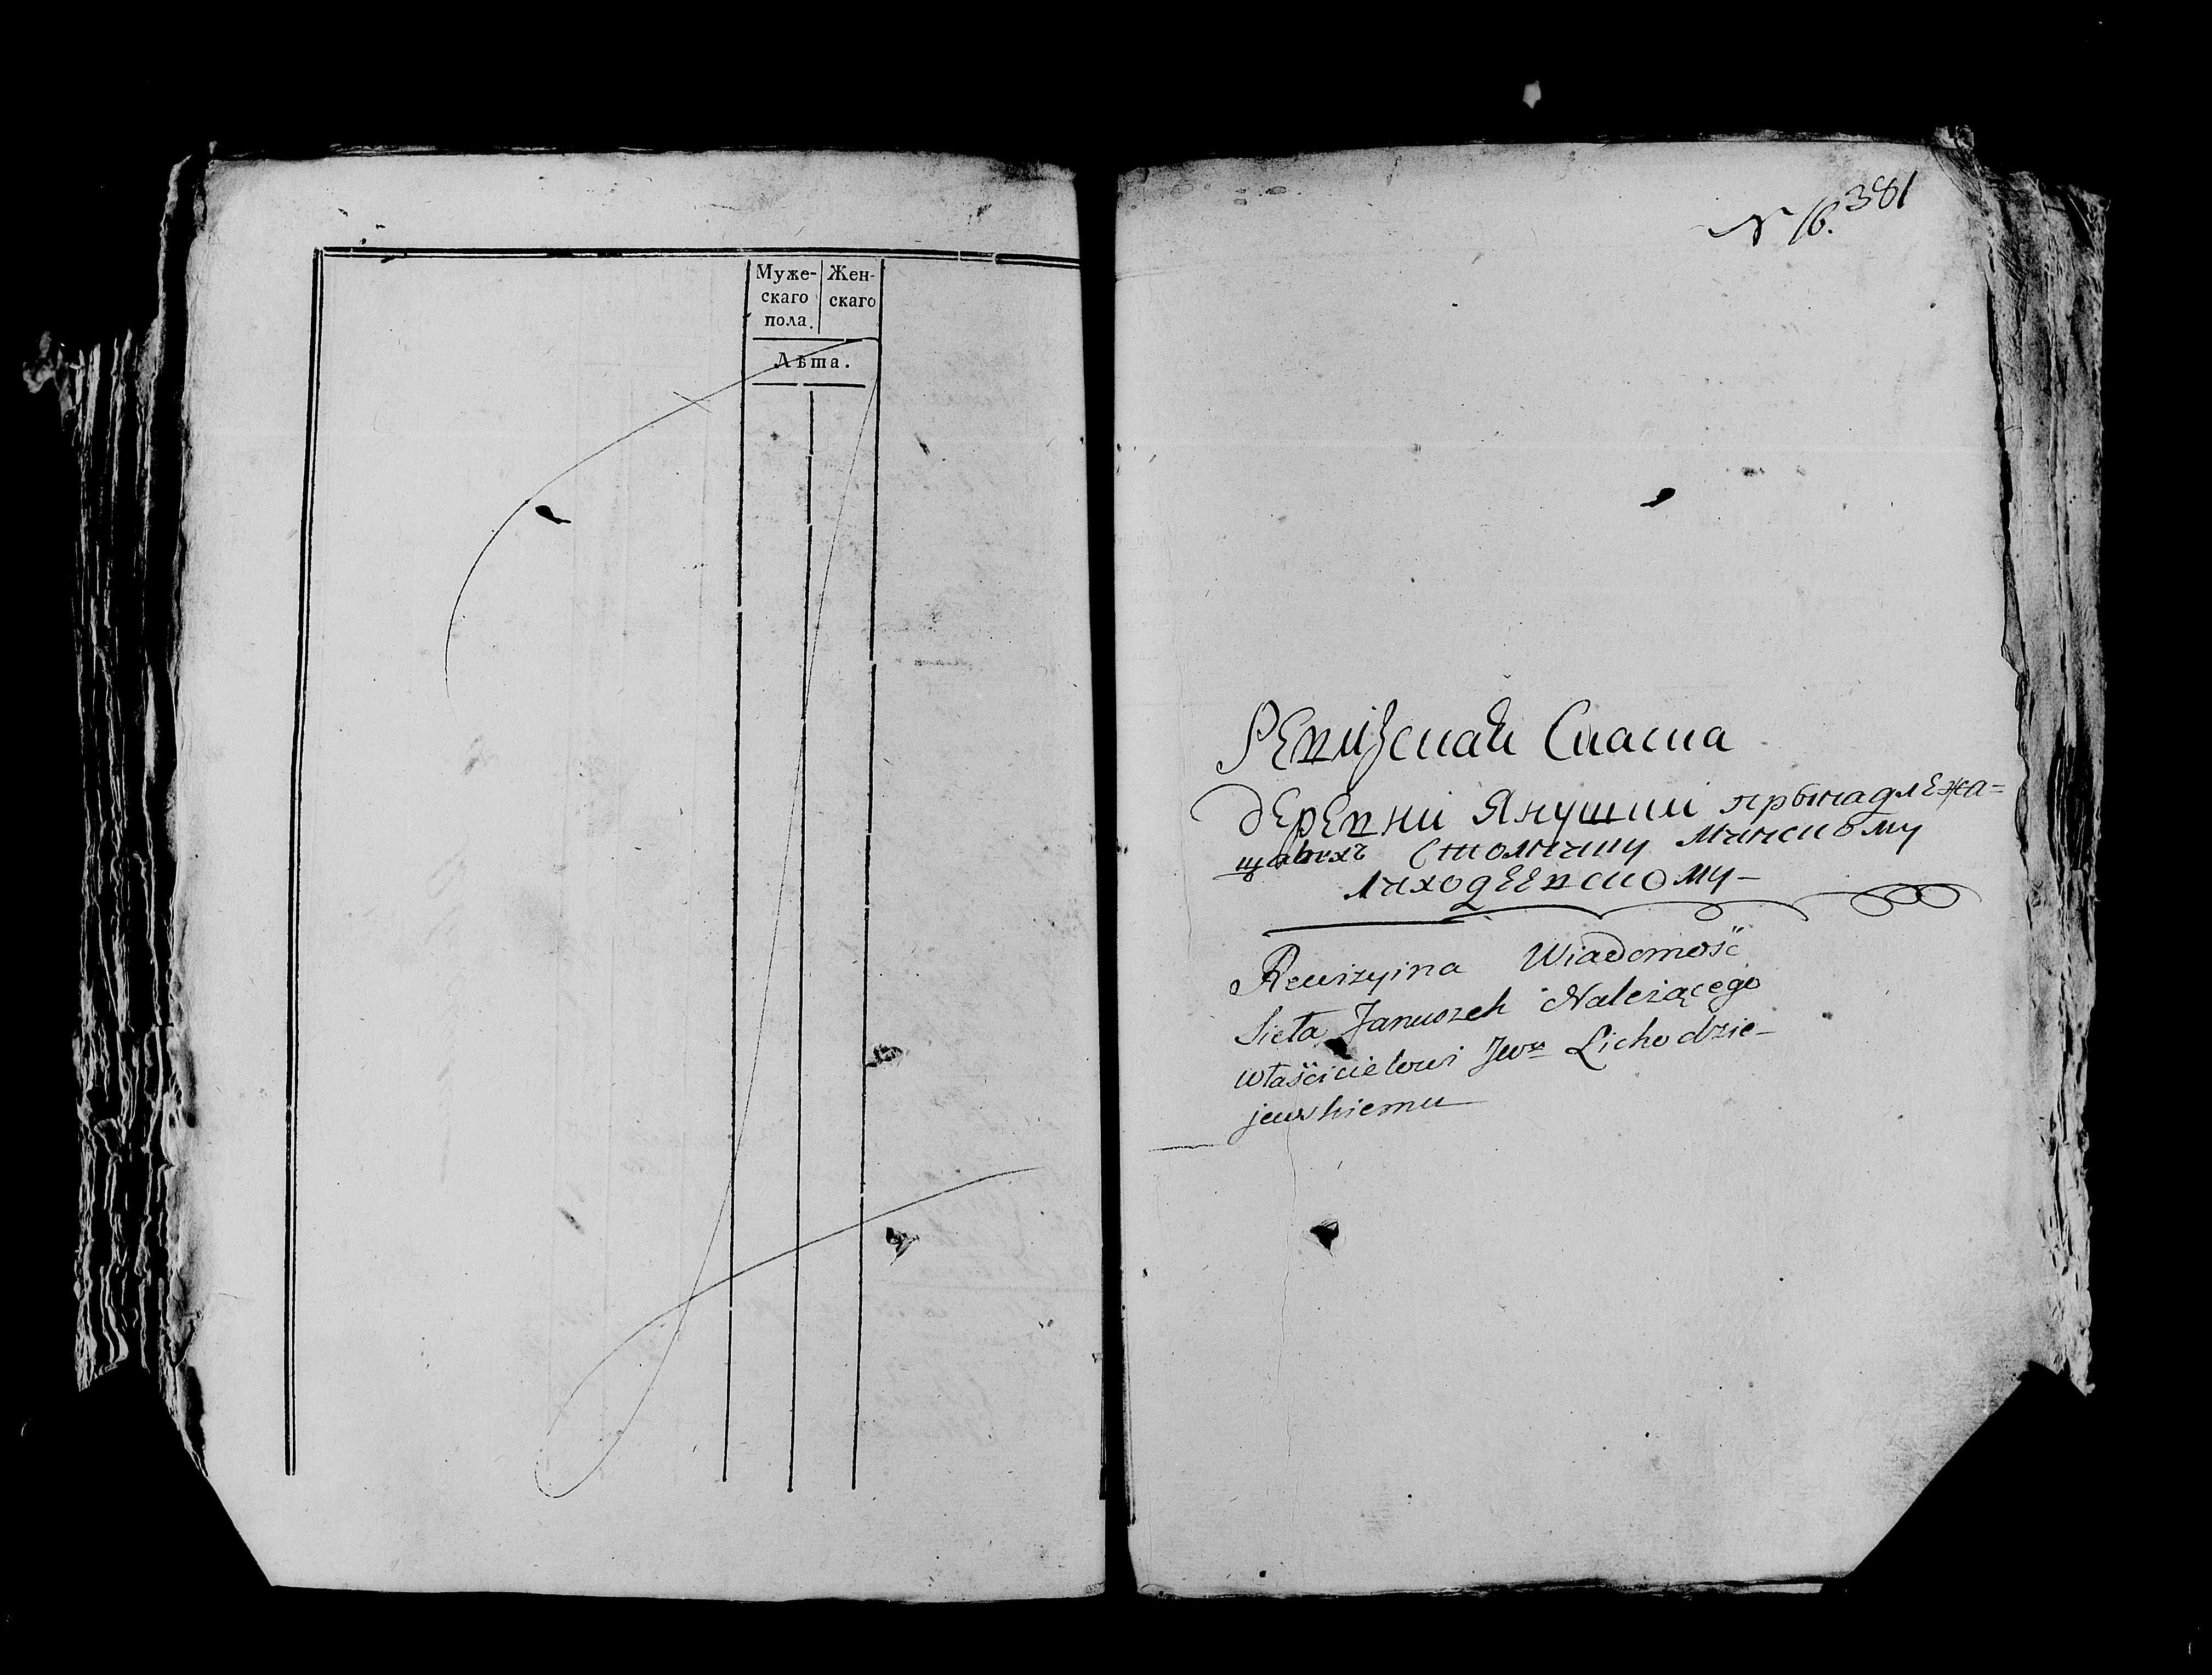 Муже-
скаго
пола.
Жен-
скаго
Лѣта.
N 16. 381
Ревизская Скаска
деревни Янушки прынадлежа-
щыхъ Стольнику Минскому
Лиходеевскому
Rewizyina Wiadomość
Sieła Januszek Należącego
właścicielowi Jwu Lichodzie-
jewskiemu